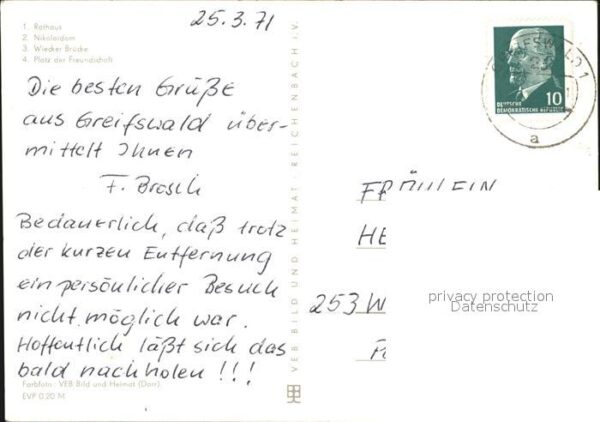 25.3.71
1. Rathaus
2. Nikolaidom
3. Wiecker Brücke
4. Platz der Freundschaft
Die besten Grüße
aus Greifswald über-
mittelt Ihnen
F. Brosch
Bedauerlich, daß trotz
der kurzen Entfernung
ein persönlicher Besuch
nicht möglich war.
Hoffentlich läßt sich das
bald nachholen !!!
Farbfoto: VEB Bild und Heimat (Darr)
EVP 0,20 M
VEB BILD UND HEIMAT · REICHENBACH i. V.
10
DEUTSCHE
DEMOKRATISCHE REPUBLIK
a
FRÄULEIN
HE
253 W
privacy protection
Datenschutz